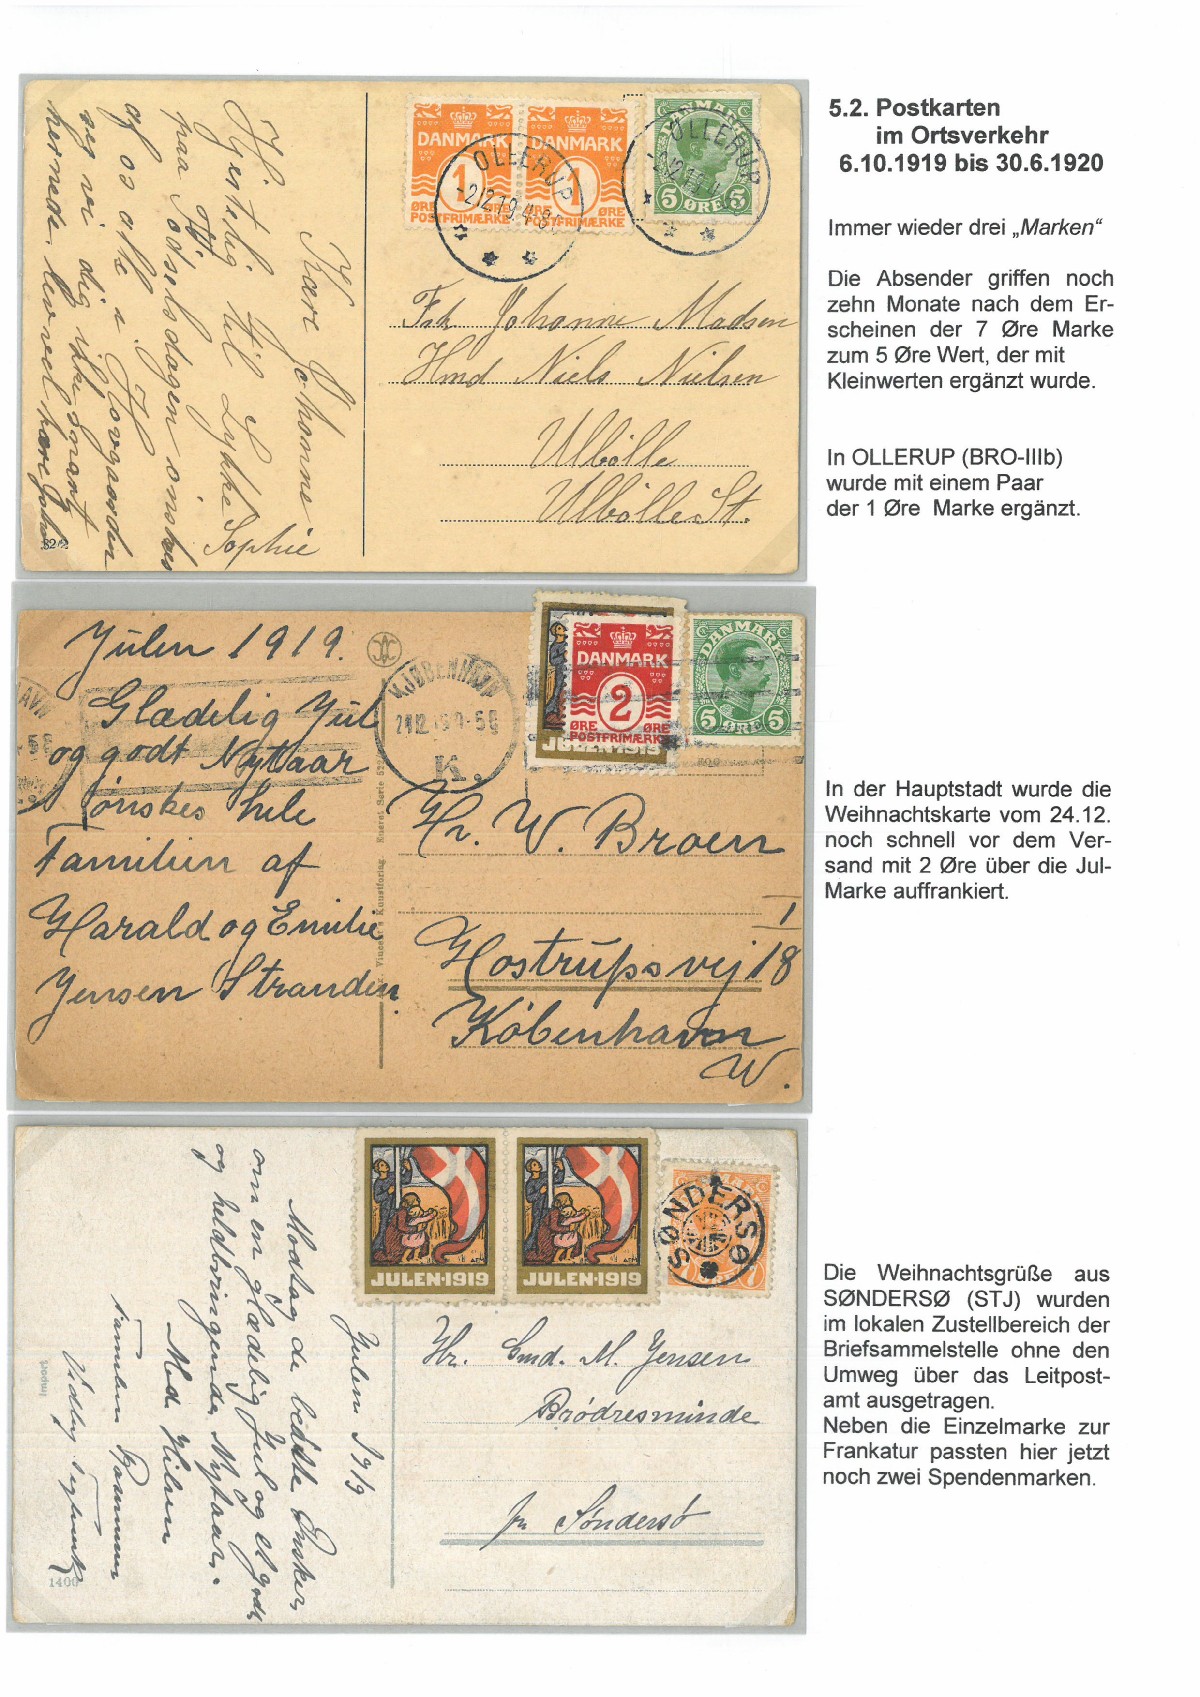 5.2. Postkarten
im Ortsverkehr
6.10.1919 bis 30.6.1920
Immer wieder drei „Marken“
Die Absender griffen noch
zehn Monate nach dem Er-
scheinen der 7 Øre Marke
zum 5 Øre Wert, der mit
Kleinwerten ergänzt wurde.
In OLLERUP (BRO-IIIb)
wurde mit einem Paar
der 1 Øre Marke ergänzt.
DANMARK DANMARK DANMARK
1 1
ØRE ØRE ØRE ØRE
POSTFRIMÆRKE POSTFRIMÆRKE
5 ØRE 5
OLLERUP
OLLERUP
Kære Johanne
Hjertelig til Lykke
paa Fødselsdagen ønskes
af os alle
Sophie
Frk Johanne Madsen
Hmd Niels Nielsen
Ulbölle
Ulbölle St.
82/2
Julen 1919.
Glædelig Jul
og godt Nytaar
ønskes hele
Familien af
Harald og Emilie
Jensen Stranden
KJØBENHAVN
K.
DANMARK
2
ØRE ØRE
POSTFRIMÆRKE
JULEN 1919
DANMARK
5 ØRE 5
Hr. W. Broen
I
Hostrupsvej 18
København
W.
In der Hauptstadt wurde die
Weihnachtskarte vom 24.12.
noch schnell vor dem Ver-
sand mit 2 Øre über die Jul-
Marke auffrankiert.
JULEN·1919 JULEN·1919
SØNDERSØ
7
Julen 1919
Modtag de bedste Ønsker
om en glædelig Jul og et godt
og heldbringende Nytaar.
Med Hilsen
Hr. Gmd. M. Jensen
Brødresminde
pr Søndersø
Import
1400
Die Weihnachtsgrüße aus
SØNDERSØ (STJ) wurden
im lokalen Zustellbereich der
Briefsammelstelle ohne den
Umweg über das Leitpost-
amt ausgetragen.
Neben die Einzelmarke zur
Frankatur passten hier jetzt
noch zwei Spendenmarken.